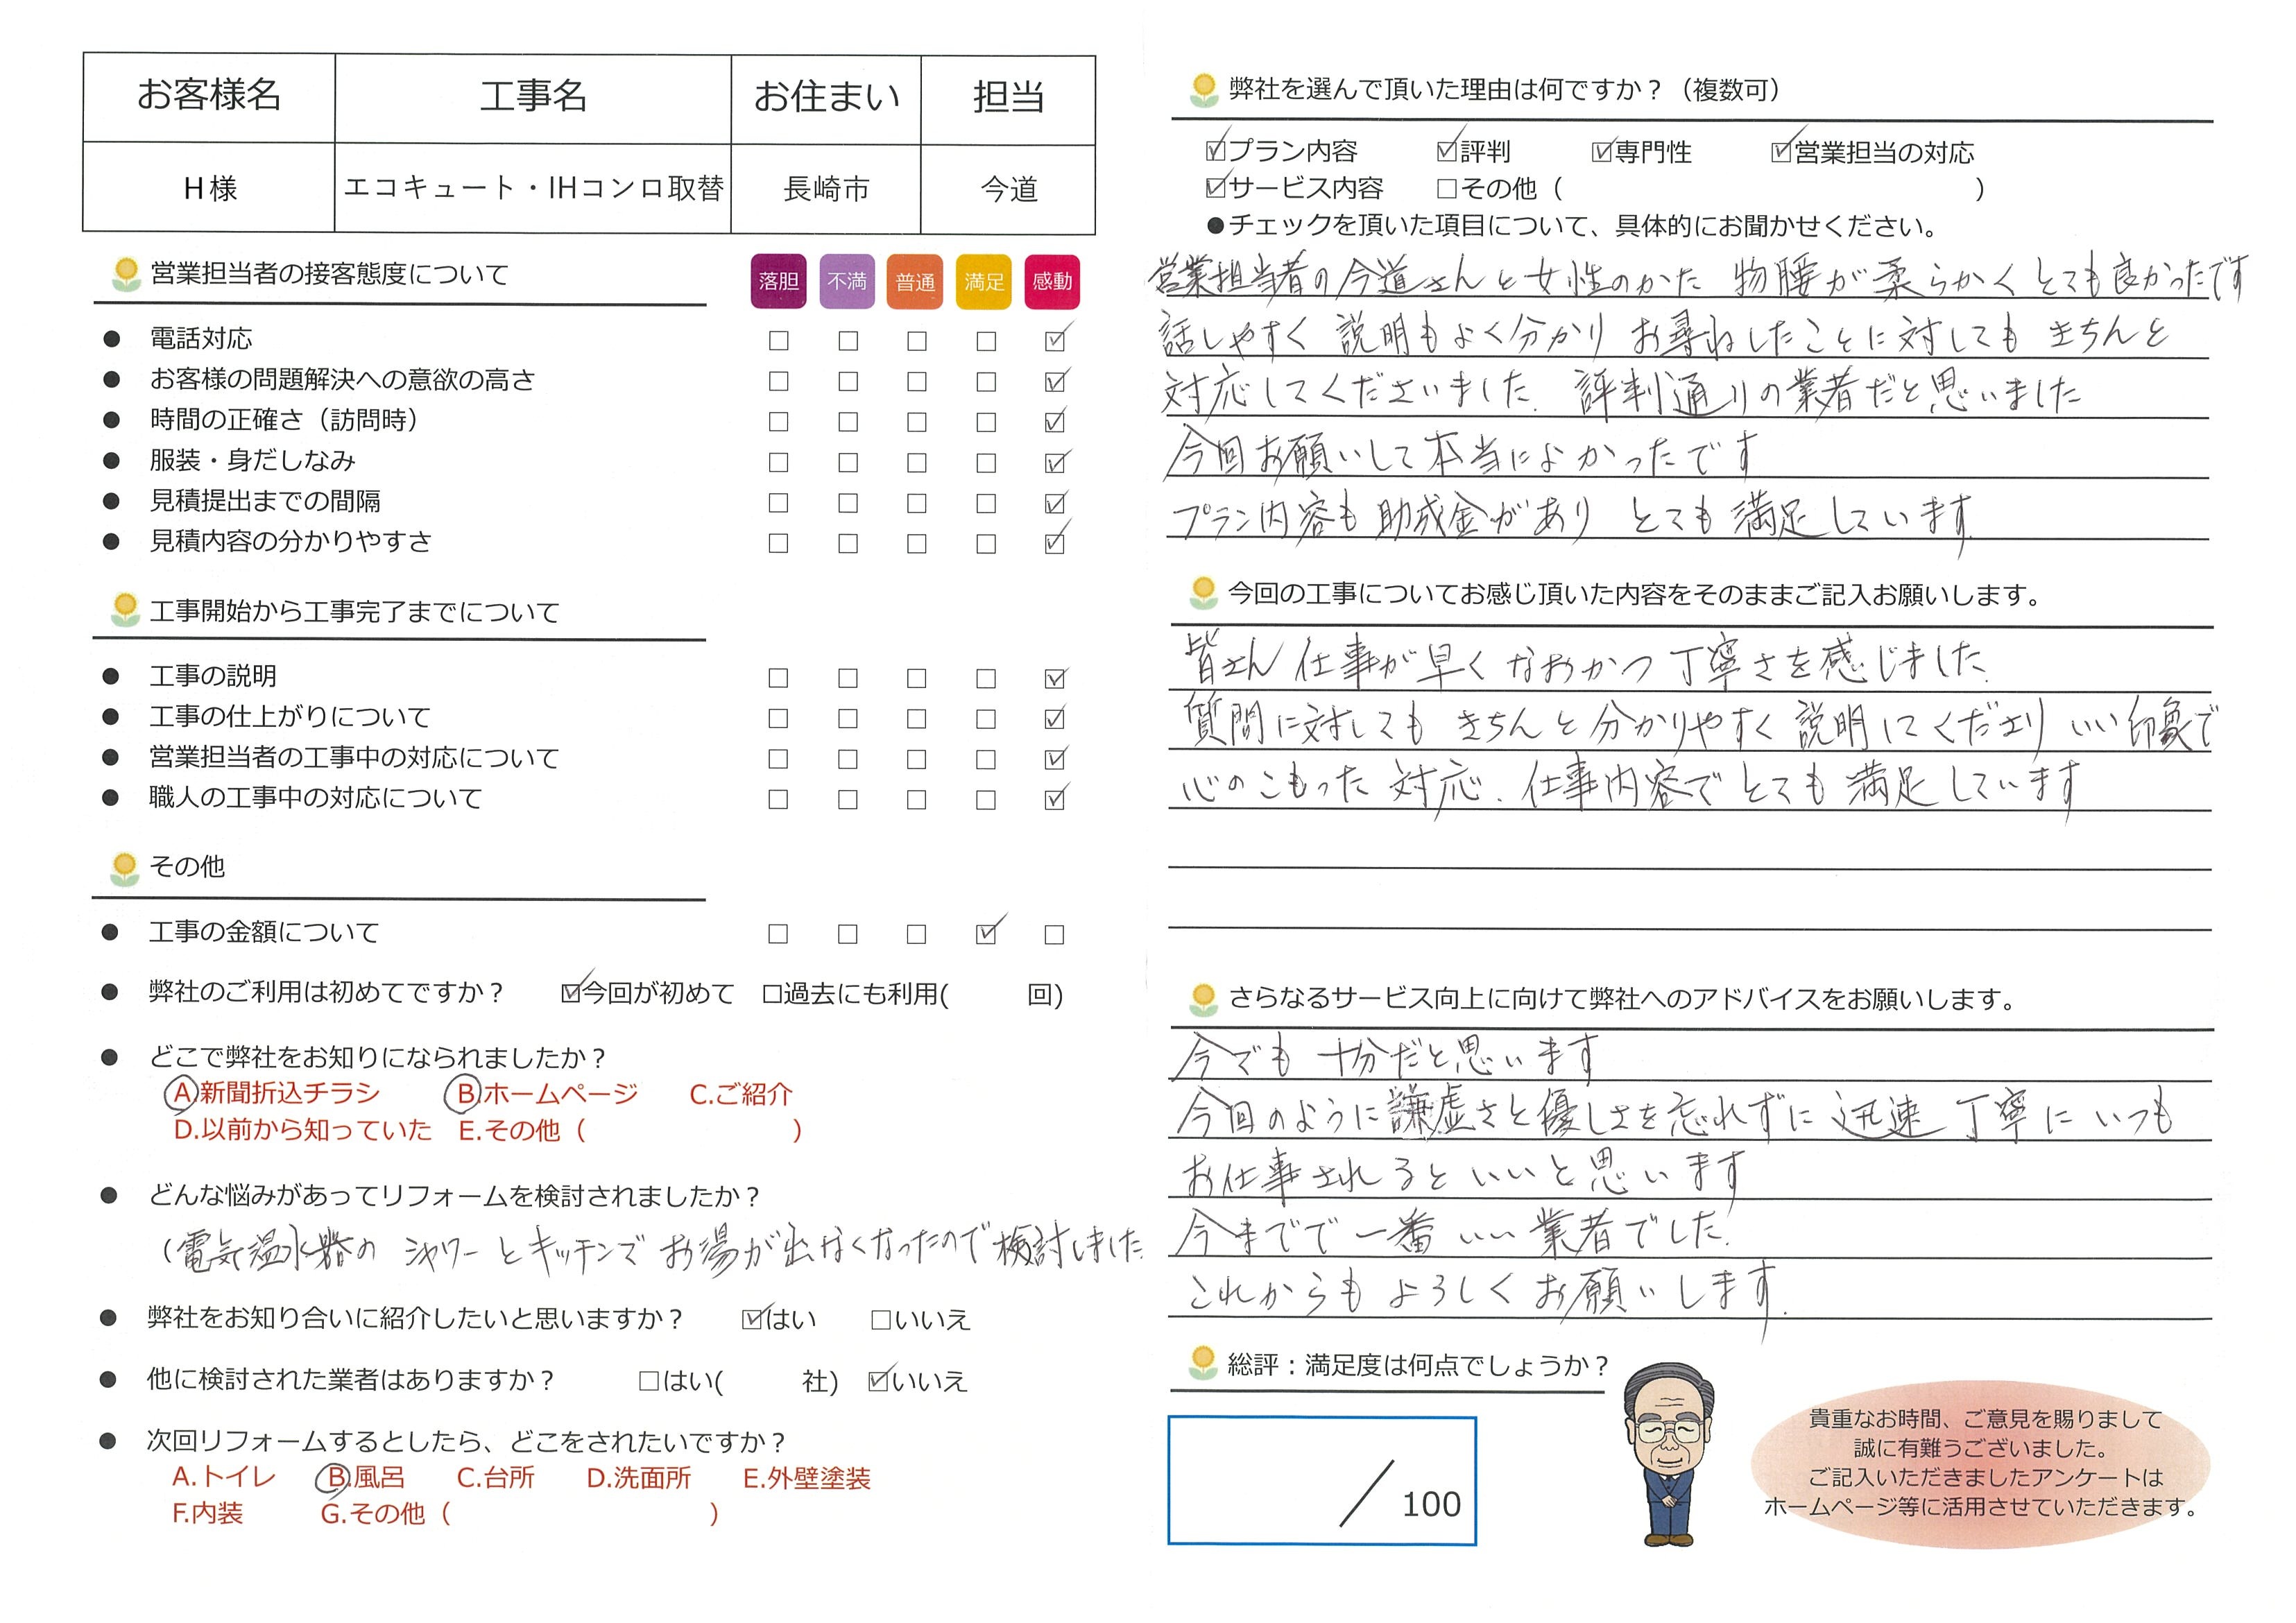 お客様名 工事名 お住まい 担当
H様 エコキュート・IHコンロ取替 長崎市 今道
営業担当者の接客態度について 落胆 不満 普通 満足 感動
● 電話対応 □ □ □ □ ☑
● お客様の問題解決への意欲の高さ □ □ □ □ ☑
● 時間の正確さ（訪問時） □ □ □ □ ☑
● 服装・身だしなみ □ □ □ □ ☑
● 見積提出までの間隔 □ □ □ □ ☑
● 見積内容の分かりやすさ □ □ □ □ ☑
工事開始から工事完了までについて
● 工事の説明 □ □ □ □ ☑
● 工事の仕上がりについて □ □ □ □ ☑
● 営業担当者の工事中の対応について □ □ □ □ ☑
● 職人の工事中の対応について □ □ □ □ ☑
その他
● 工事の金額について □ □ □ ☑ □
● 弊社のご利用は初めてですか？ ☑今回が初めて □過去にも利用( 回)
● どこで弊社をお知りになられましたか？
A.新聞折込チラシ B.ホームページ C.ご紹介
D.以前から知っていた E.その他（ ）
● どんな悩みがあってリフォームを検討されましたか？
（電気温水器の シャワーとキッチンで お湯が出なくなったので検討しました
● 弊社をお知り合いに紹介したいと思いますか？ ☑はい □いいえ
● 他に検討された業者はありますか？ □はい( 社) ☑いいえ
● 次回リフォームするとしたら、どこをされたいですか？
A.トイレ B.風呂 C.台所 D.洗面所 E.外壁塗装
F.内装 G.その他（ ）
弊社を選んで頂いた理由は何ですか？（複数可）
☑プラン内容 ☑評判 ☑専門性 ☑営業担当の対応
☑サービス内容 □その他（ ）
●チェックを頂いた項目について、具体的にお聞かせください。
営業担当者の今道さんと女性のかた 物腰が柔らかくとても良かったです
話しやすく 説明もよく分かり お尋ねしたことに対しても きちんと
対応してくださいました. 評判通りの業者だと思いました
今回お願いして本当によかったです
プラン内容も助成金があり とても満足しています.
今回の工事についてお感じ頂いた内容をそのままご記入お願いします。
皆さん仕事が早く なおかつ 丁寧さを感じました.
質問に対しても きちんと分かりやすく説明してくださり いい印象で
心のこもった 対応. 仕事内容でとても満足しています
さらなるサービス向上に向けて弊社へのアドバイスをお願いします。
今でも 十分だと思います
今回のように謙虚さと優しさを忘れずに 迅速 丁寧に いつも
お仕事されるといいと思います
今までで 一番 いい 業者でした.
これからも よろしくお願いします.
総評：満足度は何点でしょうか？
／100
貴重なお時間、ご意見を賜りまして
誠に有難うございました。
ご記入いただきましたアンケートは
ホームページ等に活用させていただきます。